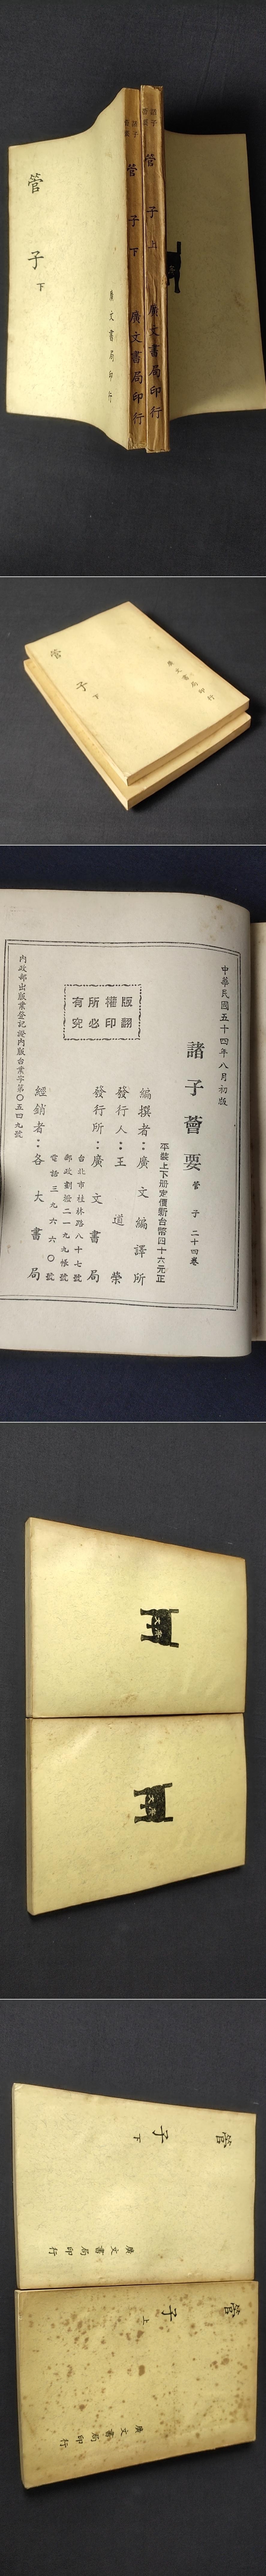 管子 下
廣文書局印行
諸子薈要
管子 下
廣文書局印行
諸子薈要
管子 上
廣文書局印行
管子 下
廣文書局印行
中華民國五十四年八月初版
諸子薈要 管子 二十四卷
平裝上下册定價新台幣四十六元正
編撰者：廣文編譯所
發行人：王道榮
發行所：廣文書局
台北市桂林路八十七號
郵政劃撥二一九九帳號
電話三九六六〇號
經銷者：各大書局
內政部出版業登記證內版台業字第〇五四九號
版權所有
翻印必究
廣文
廣文
管子 下
廣文書局印行
管子 上
廣文書局印行